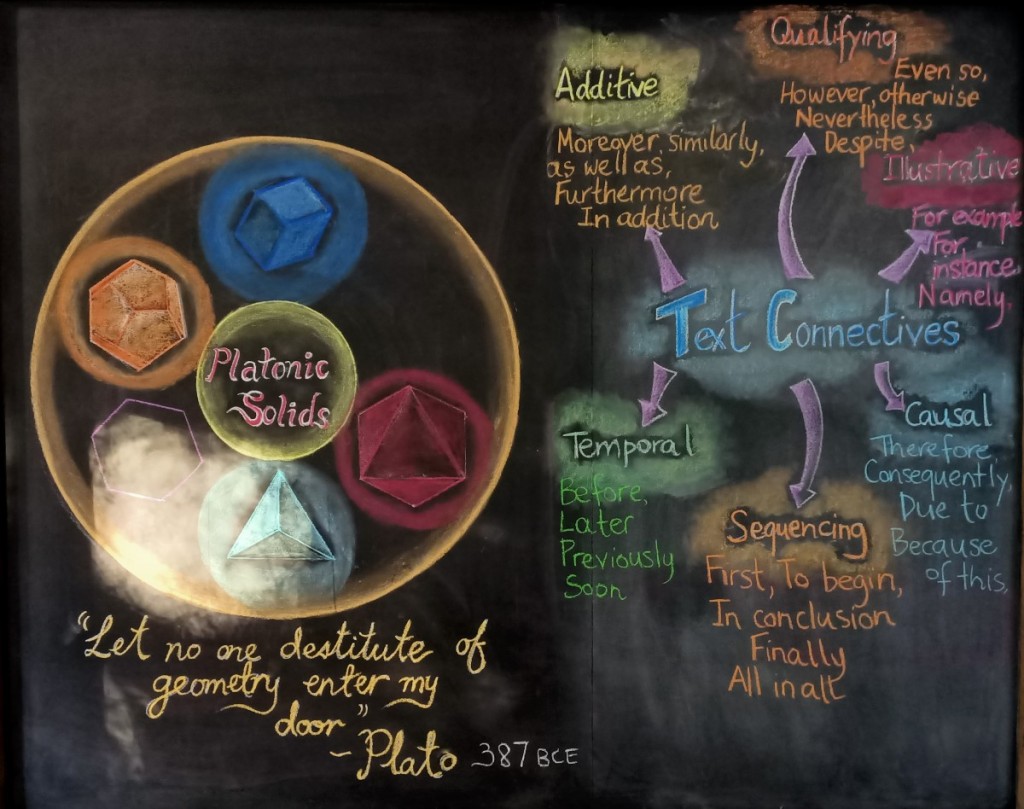 Platonic
Solids
"Let no one destitute of
geometry enter my
door"
- Plato 387 BCE
Additive
Moreover, similarly,
as well as,
Furthermore
In addition
Qualifying
Even so,
However, otherwise
Nevertheless
Despite,
Illustrative
For example
For
instance,
Namely,
Text Connectives
Temporal
Before,
Later
Previously
Soon
Sequencing
First, To begin,
In conclusion
Finally
All in all
Causal
Therefore,
Consequently,
Due to
Because
of this,